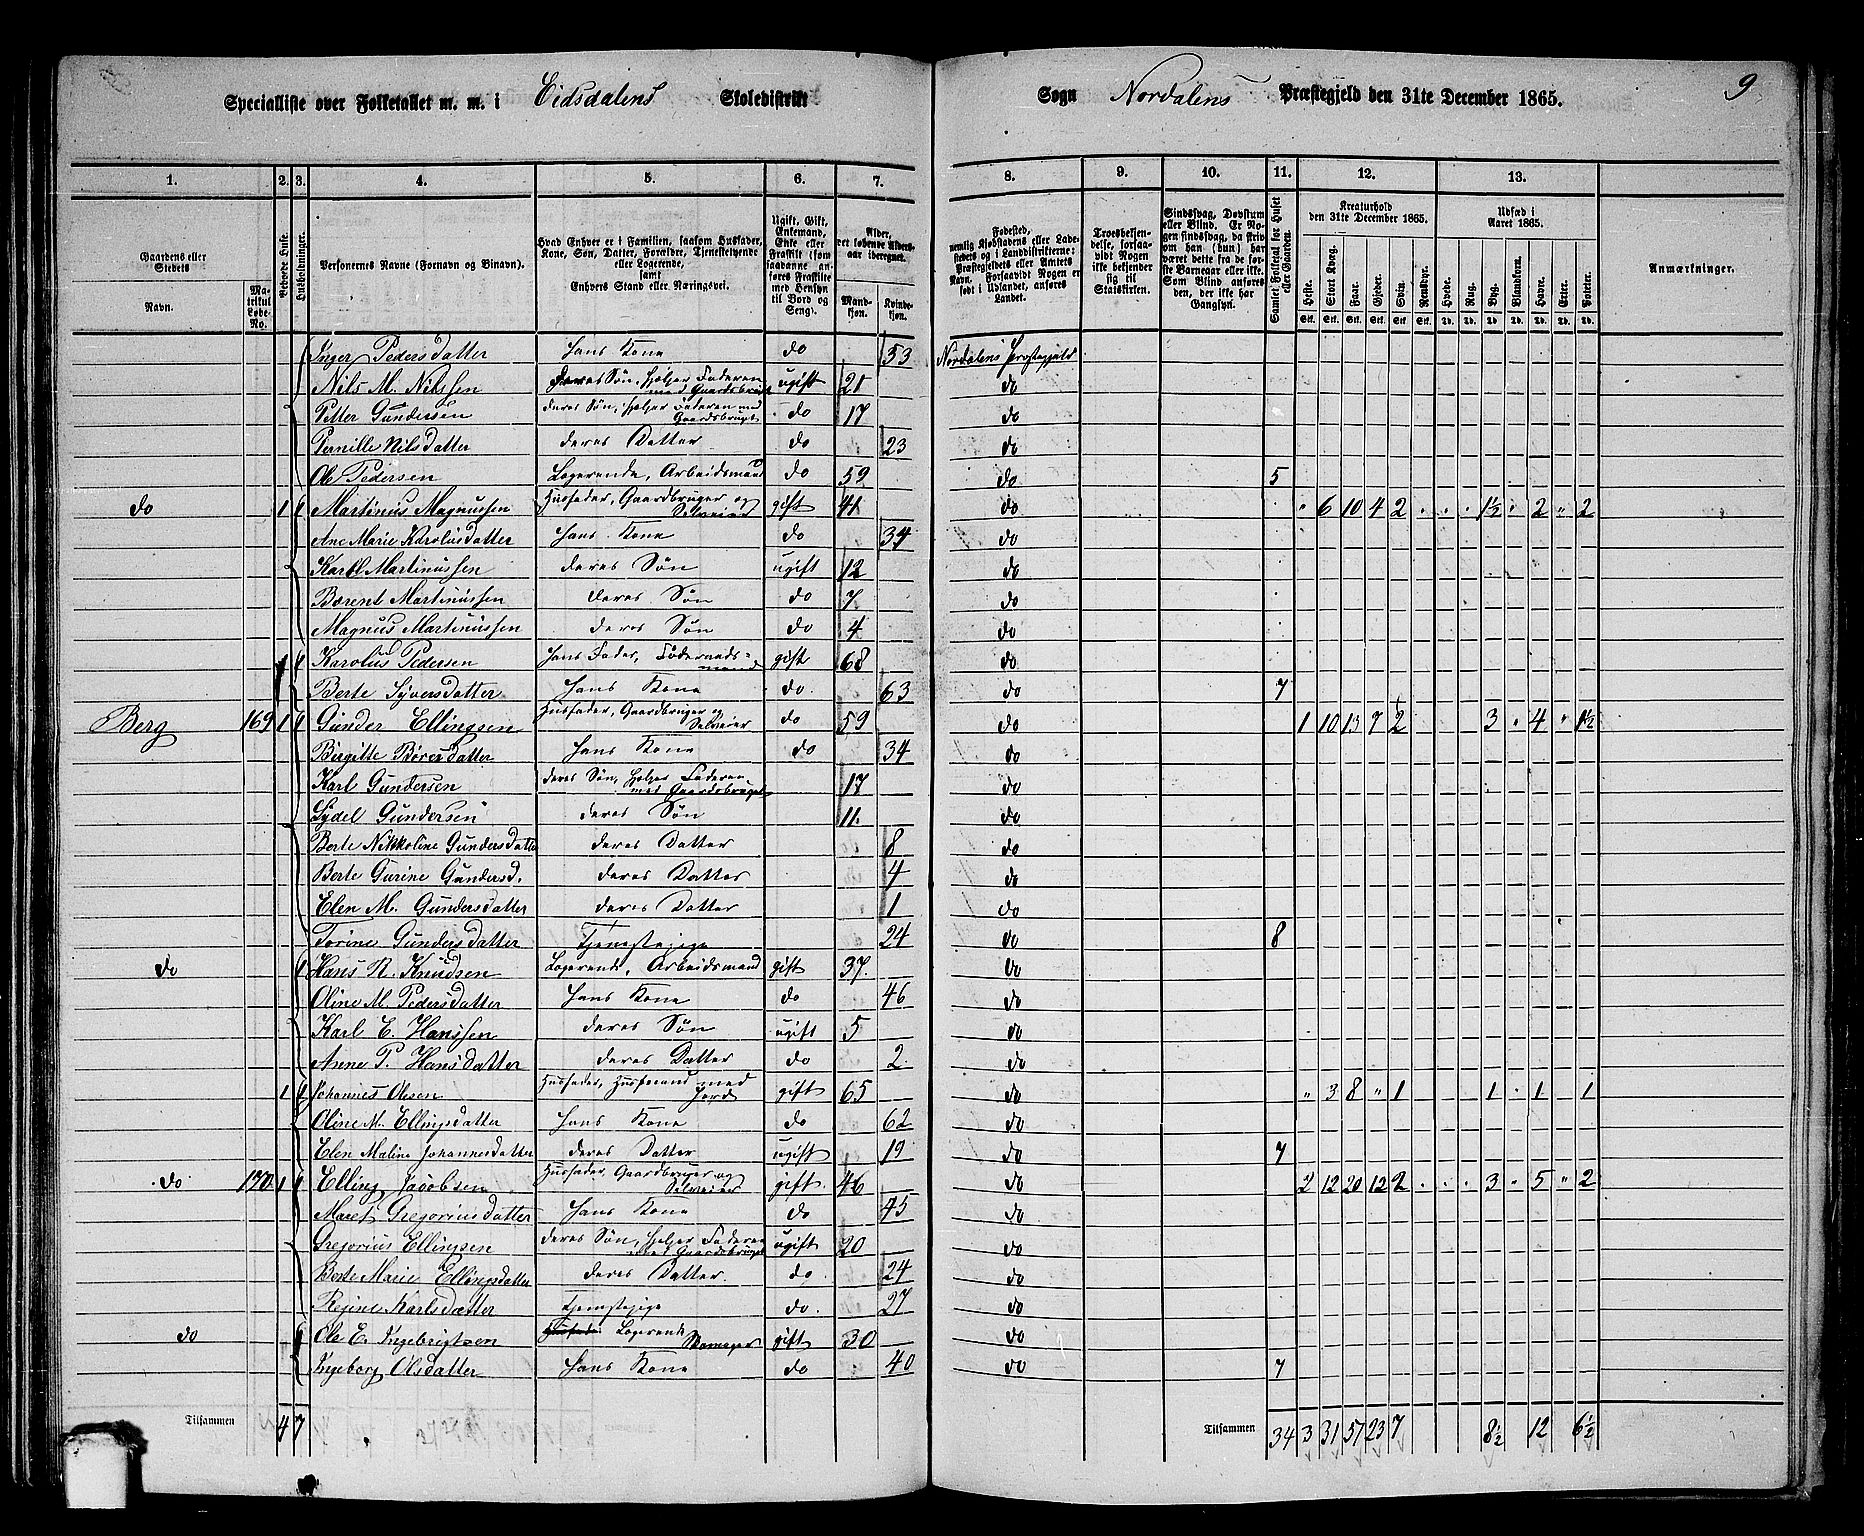 Specialliste over Folketallet m. m. i Eidsdalens Skoledistrikt Sogn Nordalens Præstegjeld den 31te December 1865. 9
1. 2. 3. 4. 5. 6. 7. 8. 9. 10. 11. 12. 13.
Gaardens eller Stedets
Navn. Matrikul Løbe-No.
Beboede Huse.
Husholdninger.
Personernes Navne (Fornavn og Binavn).
Hvad Enhver er i Familien, saasom Husfader, Kone, Søn, Datter, Forældre, Tjenestetyende eller Logerende, samt Enhvers Stand eller Næringsvei.
Ugift, Gift, Enkemand, Enke eller Fraskilt (som saadanne anføres Fraskilte med Hensyn til Bord og Seng).
Alder, det løbende Alders-aar iberegnet.
Mand-kjøn. Kvinde-kjøn.
Fødested, nemlig Kjøbstadens eller Ladestedets og i Landdistrikterne: Præstegjeldets eller Amtets Navn. Forsaavidt Nogen er født i Udlandet, anføres Landet.
Troesbekjendelse, forsaavidt Nogen ikke bekjender sig til Statskirken.
Sindssvag, Døvstum eller Blind. Er Nogen sindssvag, da skrives om han (hun) har været dette fra de første Barneaar eller ikke. Som Blind anføres den, der ikke har Gangsyn.
Samlet Folketal for Huset eller Gaarden.
Kreaturhold den 31te December 1865.
Heste. Stort Kvæg. Faar. Gjeder. Sviin. Rensdyr.
Udsæd i Aaret 1865.
Hvede. Rug. Byg. Blandkorn. Havre. Erter. Poteter.
Anmærkninger.
Inger Pedersdatter hans Kone do 53 Nordalens Præstegjeld
Nils M. Nilssen deres Søn, hjelper Faderen med Gaardsbruget ugift 21 do
Petter Gundersen deres Søn, hjelper Faderen med Gaardsbruget do 17 do
Pernille Nilsdatter deres Datter do 23 do
Ole Pedersen Logerende, Arbeidsmand do 59 do 5
do 1 1 Martinus Magnussen Husfader, Gaardbruger og Selveier gift 41 do " 6 10 4 2 1½ 2 " 2
Ane Marie Karolusdatter hans Kone do 34 do
Karl Martinussen deres Søn ugift 12 do
Bærent Martinussen deres Søn do 7 do
Magnus Martinussen deres Søn do 4 do
1 1 Karolus Pedersen hans Fader, Føderaadsmand gift 68 do
Berte Syversdatter hans Kone do 63 do 7
Berg 169 1 1 Gunder Ellingsen Husfader, Gaardbruger og Selveier do 59 do 1 10 13 7 2 3 4 " 1½
Birgitte Børresdatter hans Kone do 34 do
Karl Gundersen deres Søn, hjelper Faderen med Gaardsbruget 17 do
Sydel Gundersen deres Søn 11 do
Berte Nikkoline Gundersdatter deres Datter 8 do
Berte Gurine Gundersd. deres Datter 4 do
Elen M. Gundersdatter deres Datter 1 do
Torine Gundersdatter Tjenestepige 24 do 8
do 1 Hans R. Knudsen Logerende, Arbeidsmand gift 37 do
Oline M. Pedersdatter hans Kone do 46 do
Karl E. Hanssen deres Søn ugift 5 do
Anne P. Hansdatter deres Datter do 2 do
1 1 Johannes Olesen Husfader, Husmand med Jord gift 65 do " 3 8 " 1 1 1 1
Oline M. Ellingsdatter hans Kone do 62 do
Elen Maline Johannesdatter deres Datter ugift 19 do 7
do 170 1 1 Elling Jacobsen Husfader, Gaardbruger og Selveier gift 46 do 2 12 20 12 2 3 5 " 2
Maret Gregoriusdatter hans Kone do 45 do
Gregorius Ellingsen deres Søn, hjelper Faderen med Gaardsbruget ugift 20 do
Berte Marie Ellingsdatter deres Datter do 24 do
Regine Karlsdatter Tjenestepige do 27 do
do 1 Ole E. Ingebrigtsen Logerende Skomager gift 30 do
Ingeborg Olsdatter hans Kone do 40 do 7
Tilsammen 4 7 Tilsammen 34 3 31 57 23 7 8½ 12 6½